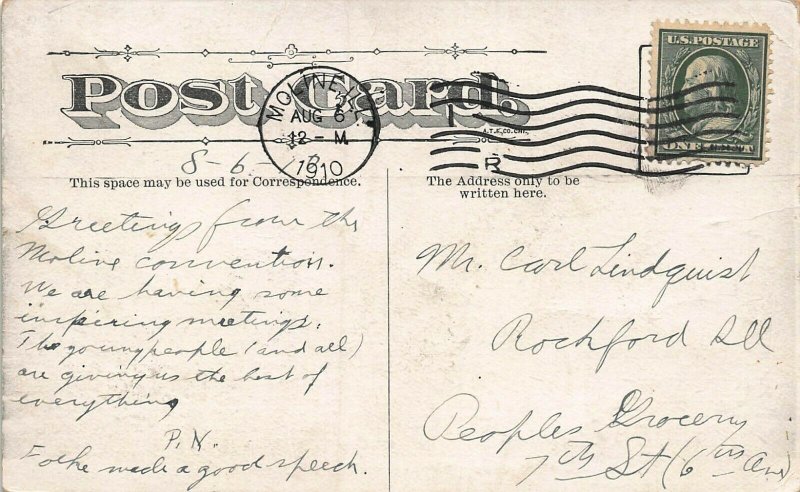 Post Card.
MOLINE, ILL.
AUG 6
12 - M
1910
U.S. POSTAGE
ONE CENT
A.T.&CO. CHI.
8-6-10
This space may be used for Correspondence.
The Address only to be
written here.
Greetings from the
Moline convention.
We are having some
inspiring meetings.
The young people (and all)
are giving us the best of
everything
P.N.
Folke made a good speech.
Mr. Carl Lindquist
Rockford Ill
Peoples Grocery
7th St (6th Ave